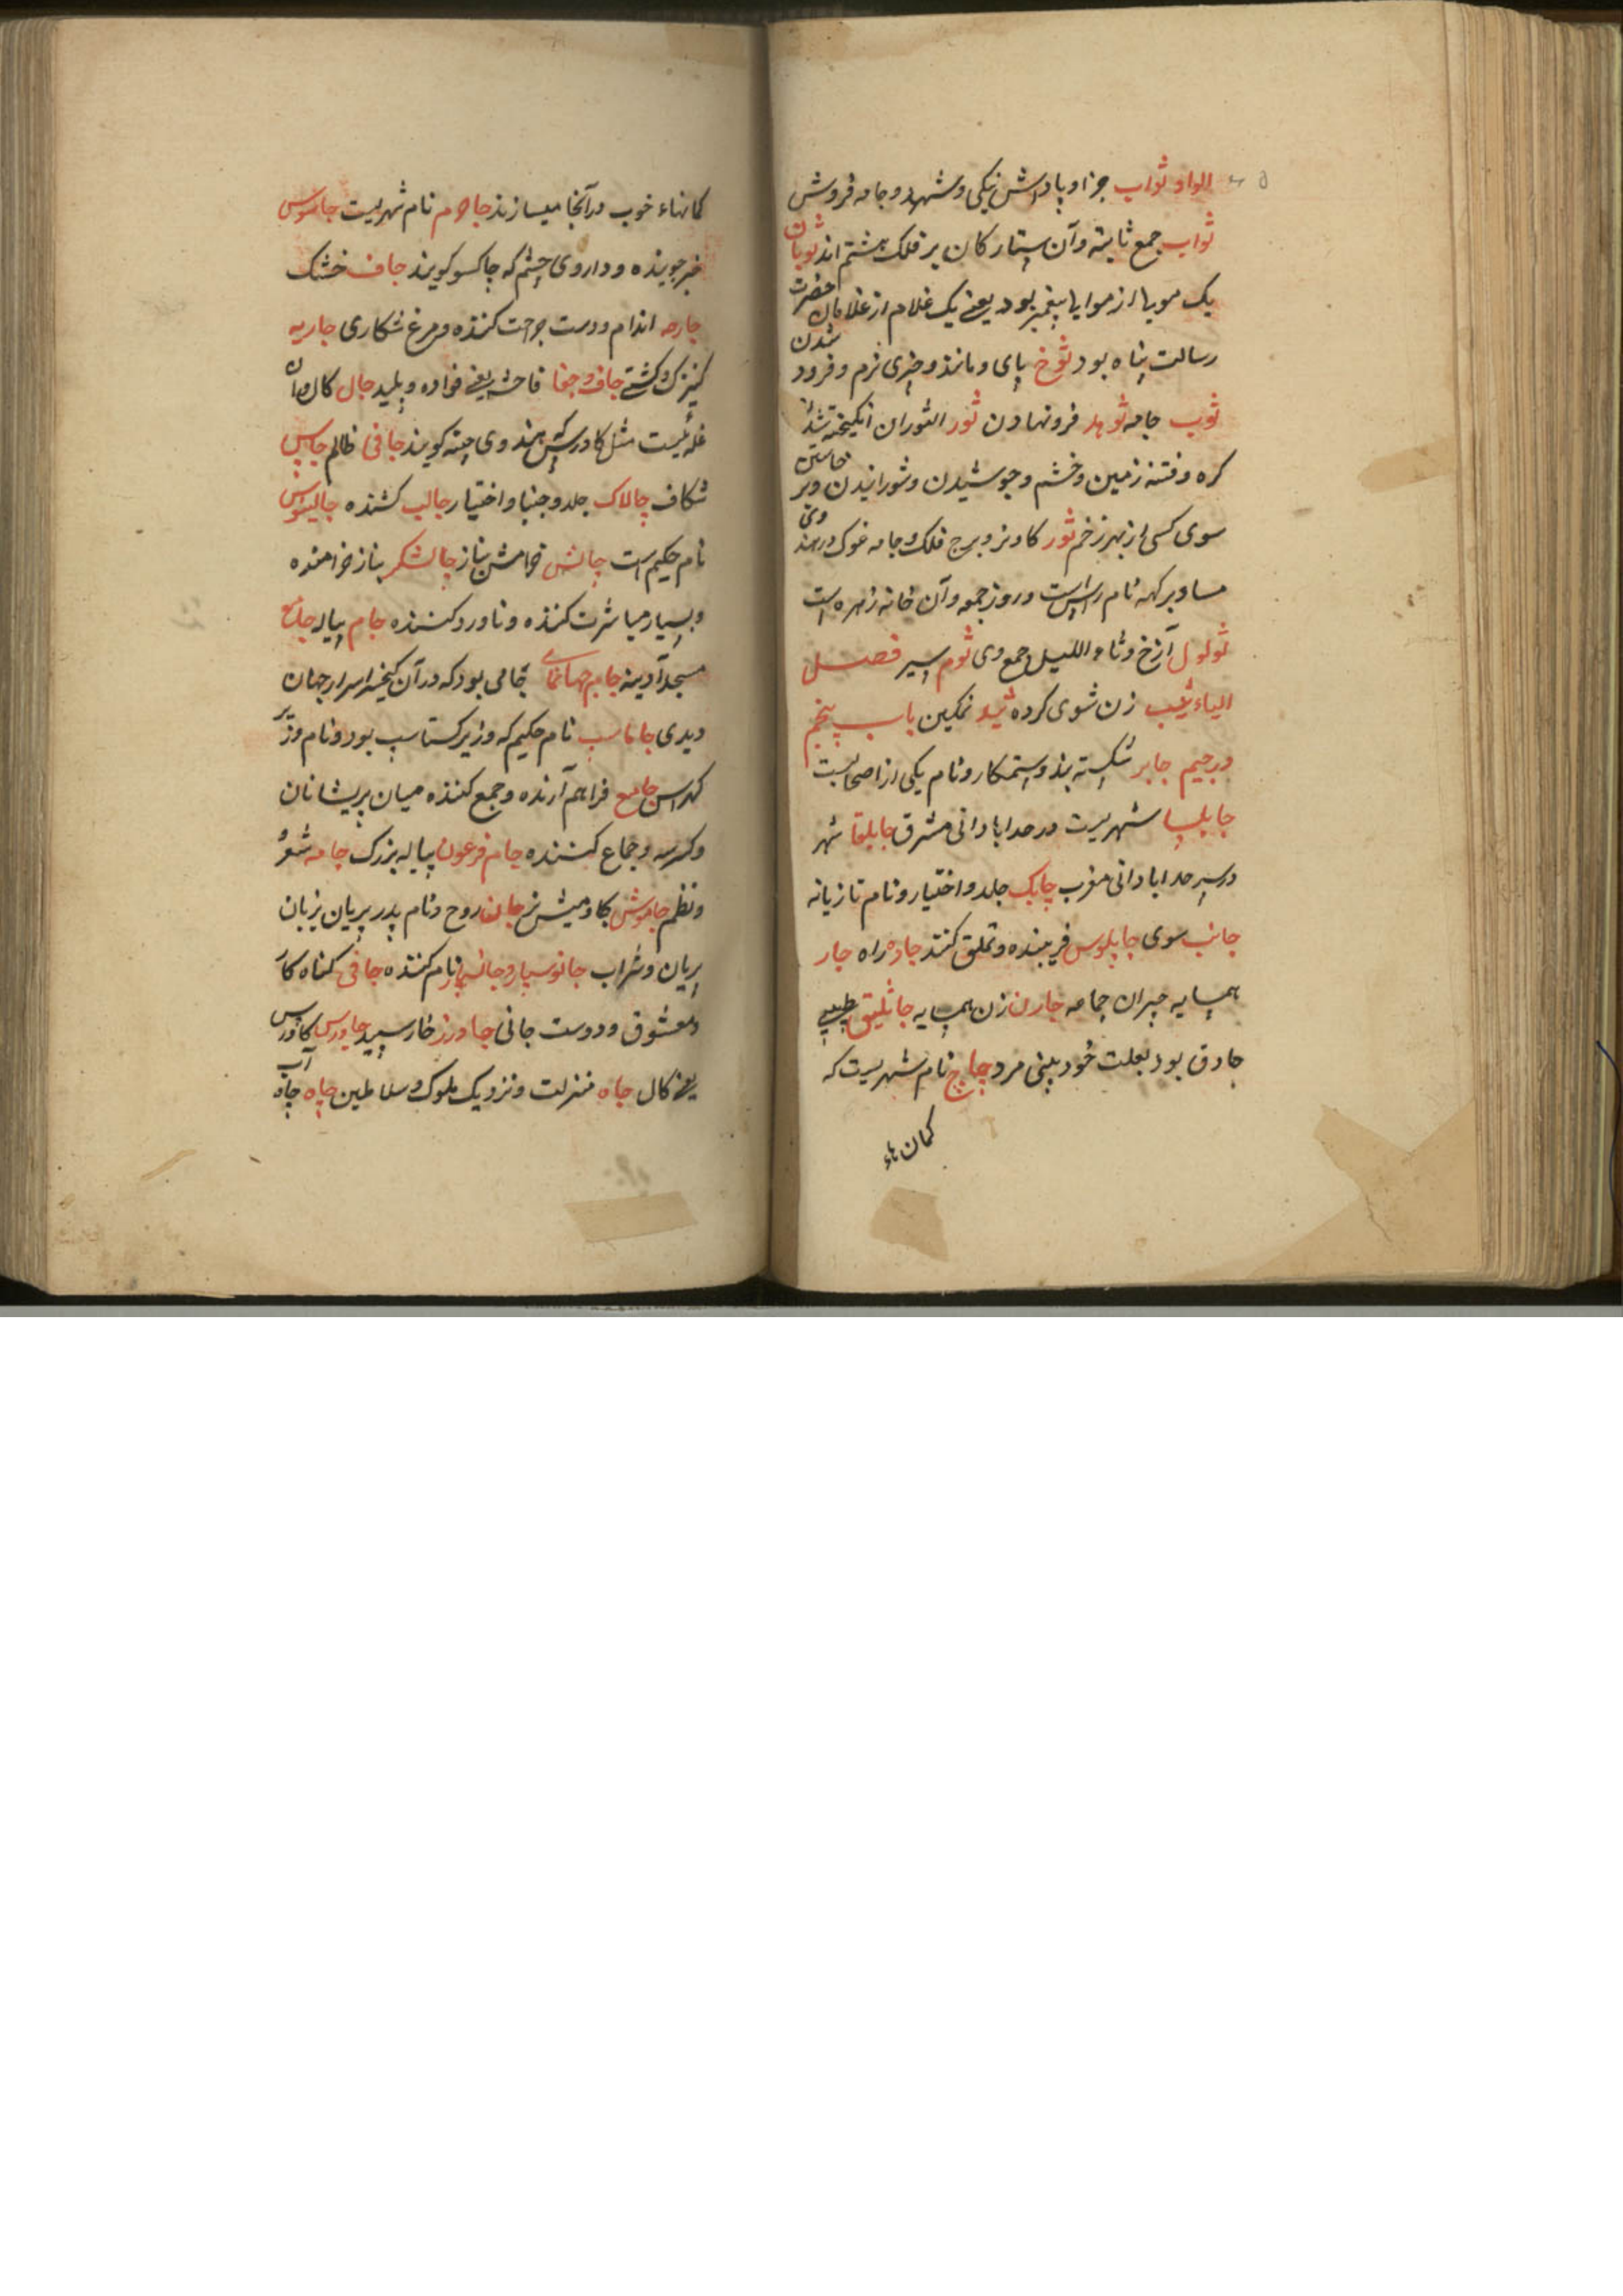 الواو ثواب جزا و پاداش نیکی و شهد و جامه فروش
ثواب جمع ثابته و آن ستارکان بر فلک هشتم اند ثوبان
یک مویا از موایا پیغمبر بود یعنے یک غلام از غلامان حضرت
رسالت پناه بود ثوخ پای و ماند و چیزی نرم و فرود شدن
ثوب جامه ثوهد فرونهادن ثور الثوران انکیخته شدن
کره و فتنه زمین و خشم و جوشیدن و شورانیدن و بر خاستن
سوی کسی از بهر زخم ثور کاو نر و برج فلک و جامه غوک و در هند وی
مساو بر کهه نام راس است و روز جمعه و آن خانه زهره است
ثولول آزخ و ثاء اللیل جمع وی ثوم سیر فصل
الیاء ثیب زن شوی کرده نمکین باب پنجم
در جیم جابر شکسته بند و ستمکار و نام یکی از اصحابست
جابلسا شهریست در حد ابادانی مشرق جابلقا شهر
در سرحد ابادانی مغرب چابک جلد و اختیار و نام تازیانه
جانب سوی چاپلوس فریبنده و تملق کنند جاده راه جار
همسایه جیران جماعه جارن زن همسایه جاثلیق طبیبی
حاذق بود بعلت خود بینی مرد چاچ نام شهریست که
کمان هاء
کمانهاء خوب در آنجا میسازند جاجرم نام شهریست جاسوس
خبر جوینده و داروی چشم که چاکسو کویند جاف خشک
جارحه اندام و دست جراحت کننده و مرغ شکاری جاریه
کنیزک و کشتے جاف و جفا فاحشه یعنے و پلید جال کال و آن
غله ئیست مثل کاورس هندوی چینه کویند جافی ظالم
شکاف چالاک جلد و اختیار جالب کشنده جالینوس
نام حکیم است چالش خرامش بناز چالشکر بناز خرامنده
و بسیار مباشرت کننده و ناورد کننده جام پیاله جامع
مسجد آدینه جام جهان نمای جامی بود که در آن کیخسرو اسرار جهان
دیدی جاماسب نام حکیم که وزیر کستاسب بود و نام وزیر
لهراسب جامع فراهم آرنده و جمع کننده میان پریشانان
و جماع کننده جام فرعون پیاله بزرک چامه شعر
و نظم جاموش کاومیش نر جان روح و نام پدر پریان بزبان
پریان و شراب جانوسپار و نام کننده جافی کناه کار
و معشوق و دوست جانی جاورز خار سپید جاورس کاورس
یعنے کال جاه منزلت و نزدیک ملوک و سلاطین چاه چاه آب